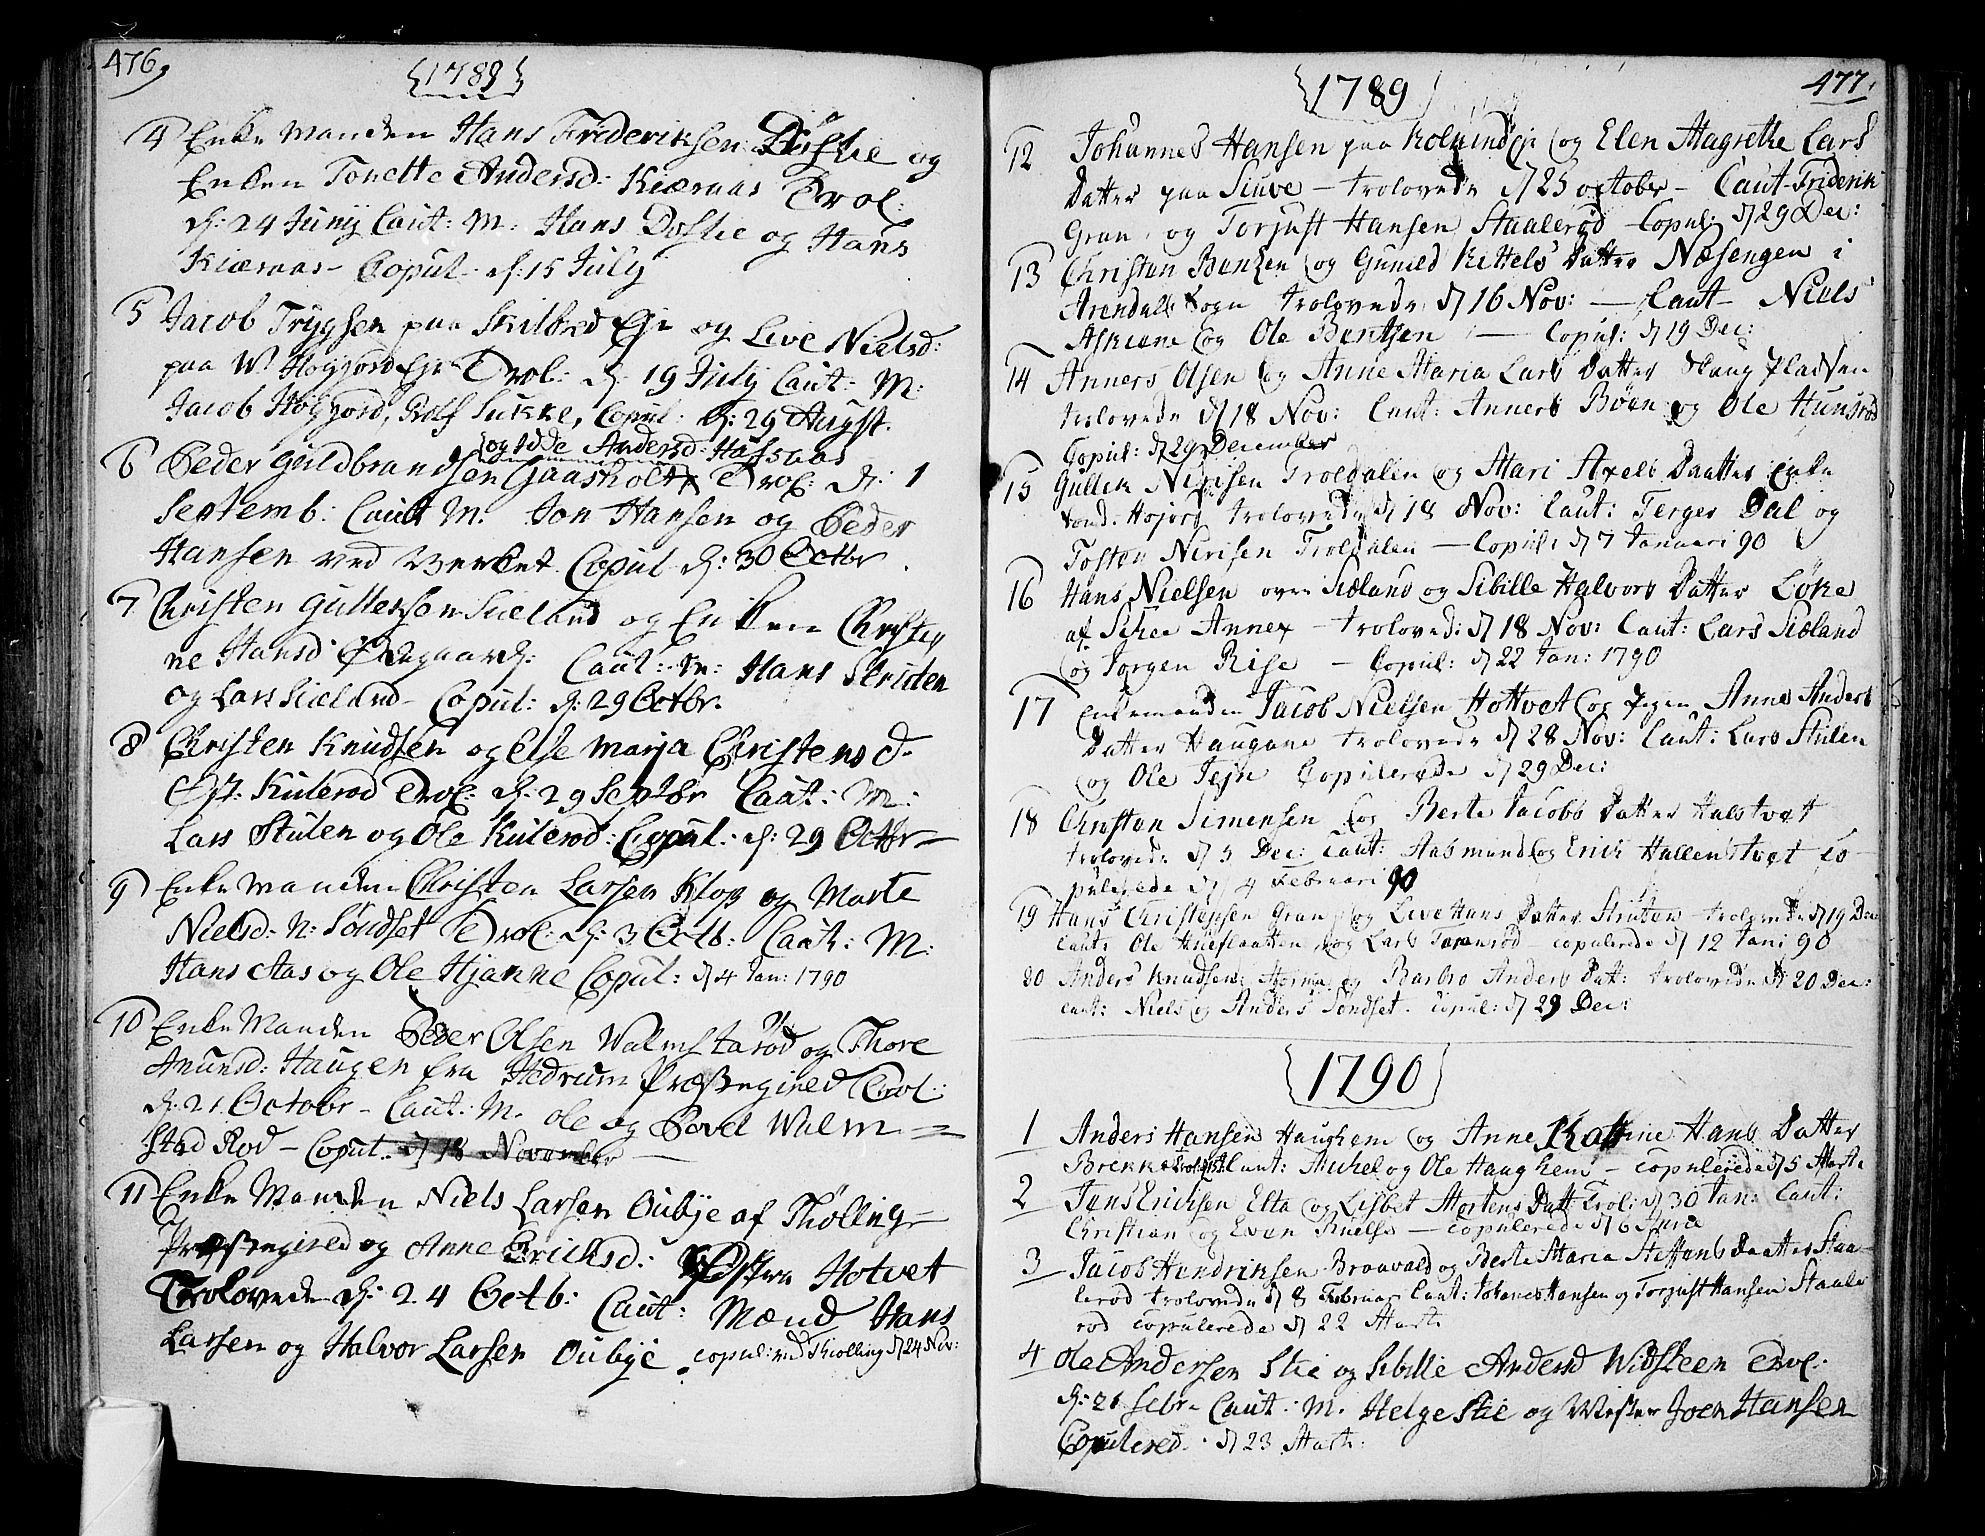 476,
1789
4 Enke Manden Hans Frideriksen Dostie og
Enken Tonette Andersd: Kiærnaas Trol:
d: 24 Junij Caut: M. Hans Dostie og Hans
Kiærnaas - Copul. d: 15 July
5 Jacob Trygsen paa Skilbred Eje og Live Nielsd:
paa W Hogjord Eje Trol: d: 19 July Caut: M:
Jacob Hogjord, Rolf Sukke, Copul: d: 29 August.
og Idde Andersd: Hassaas
6 Peder Guldbrandsen Gaasholt Trol: d: 1
Septemb: Caut M. Jon Hansen og Peder
Hansen ved Verket Copul d: 30 Octbr.
7 Christen Gullersen Siæland og Enken Christi
ne Hansd: Ødegaard: Caut: M: Hans Skriden
og Lars Siæland - Copul: d: 29 Octbr.
8 Christen Knudsen og Else Marja Christensd.
Eft: Kulerød Trol: d: 29 Septbr Caut: M:
Lars Stulen og Ole Kulerød: Copul: d: 29 Octbr
9 Enke Manden Christen Larsen Klop og Marte
Nielsd: N: Søndset Trol: d: 3 Octb: Caut: M:
Hans Aas og Ole Hjanne Copul: d 4 Jan: 1790
10 Enke Manden Peder Olsen Walmstarød og Thore
Anunsd: Haugen fra Hedrum Præstegield Trol:
d: 21 Octobr - Caut: M. Ole og Povel Walm =
stad Rød - Copul: d 18 November
11 Enke Manden Niels Larsen Oubye af Thølling =
Præstegield og Anne Ericksd: Østre Hotvet
Trolovede d: 24 Octb: Caut: Mænd Hans
Larsen og Halvor Larsen Oubye. copul: ved Thiølling d 24 Nov:
1789
477.
12 Johannes Hansen paa Eje og Elen Magrethe Lars
Datter paa Siuve - trolovede d 25 october - Caut. Friderik
Gran, og Torjust Hansen Staalerød Copul: d 29 Dec:
13 Christen Benzen og Gunild Kittels Datter Næsengen i
Arendals Sogn trolovede d 16 Nov: - Caut - Niels
Askiene og Ole Bentsen - Copul: d 19 Dec:
14 Anners Olsen og Anne Maria Lars Datter Haug Pladsen
trolovede d 18 Nov: Caut: Anners Bøen og Ole Hunsrød
Copul: d 29 December
15 Gullek Nerisen Troldalen og Mari Axels Daatter Enke
Hojord trolovede d 18 Nov: Caut: Terger Dal og
Tosten Nerisen Troldalen - Copul: d 7 Januari 90
16 Hans Nielsen over Siøland og Sibille Halvors Datter Løke
af Schee Annex - troloved: d 18 Nov: Caut: Lars Siøland
og Jorgen Rise - Copul: d 22 Jan: 1790
17 Enkemanden Jacob Nielsen Hottvet og Pigen Anne Anders
Datter Haugane trolovede d 28 Nov: Caut: Lars Stulen
og Ole Tejn Copulerede d 29 Dec:
18 Christen Simensen og Berte Jacobs Datter Halstvet
trolovede d 5 Dec: Caut: Aasmund og Erich Hallenstvet co
pulerede d 4 Februari 90
19 Hans Christensen Gran og Live Hans Datter Skriden - trolovede d 19 Dec
Caut: Ole Kneflaatten og Lars Taranrød - copulerede d 12 Jani 90
20 Anders Knudsen og Barbro Anders Dat: trolovede d: 20 Dec:
Caut: Niels og Anders Søndset. copul: d 29 Dec:
1790
1 Anders Hansen Haughem og Anne Katrine Hans Datter
Brekke Caut: Mickel og Ole Haughem - copulerede d 5 Marti
2 Jens Ericksen Elta og Lisbet Mortens Datt Trol: d 30 Jan: Caut:
Christian og Even - copulerede d 6
3 Jacob Hendriksen Braavald og Berte Maria Steffens Daatter Staa-
lerød trolovede d 8 Februar Caut: Johanes Hansen og Torjust Hansen Staale
rød copulerede d 22 Marti
4 Ole Andersen Stie og Sibille Andersd Widsteen Trol:
d: 21 Febr. Caut: M. Helge Stie og Mester Joen Hansen
Copulered. d 23 Marti: